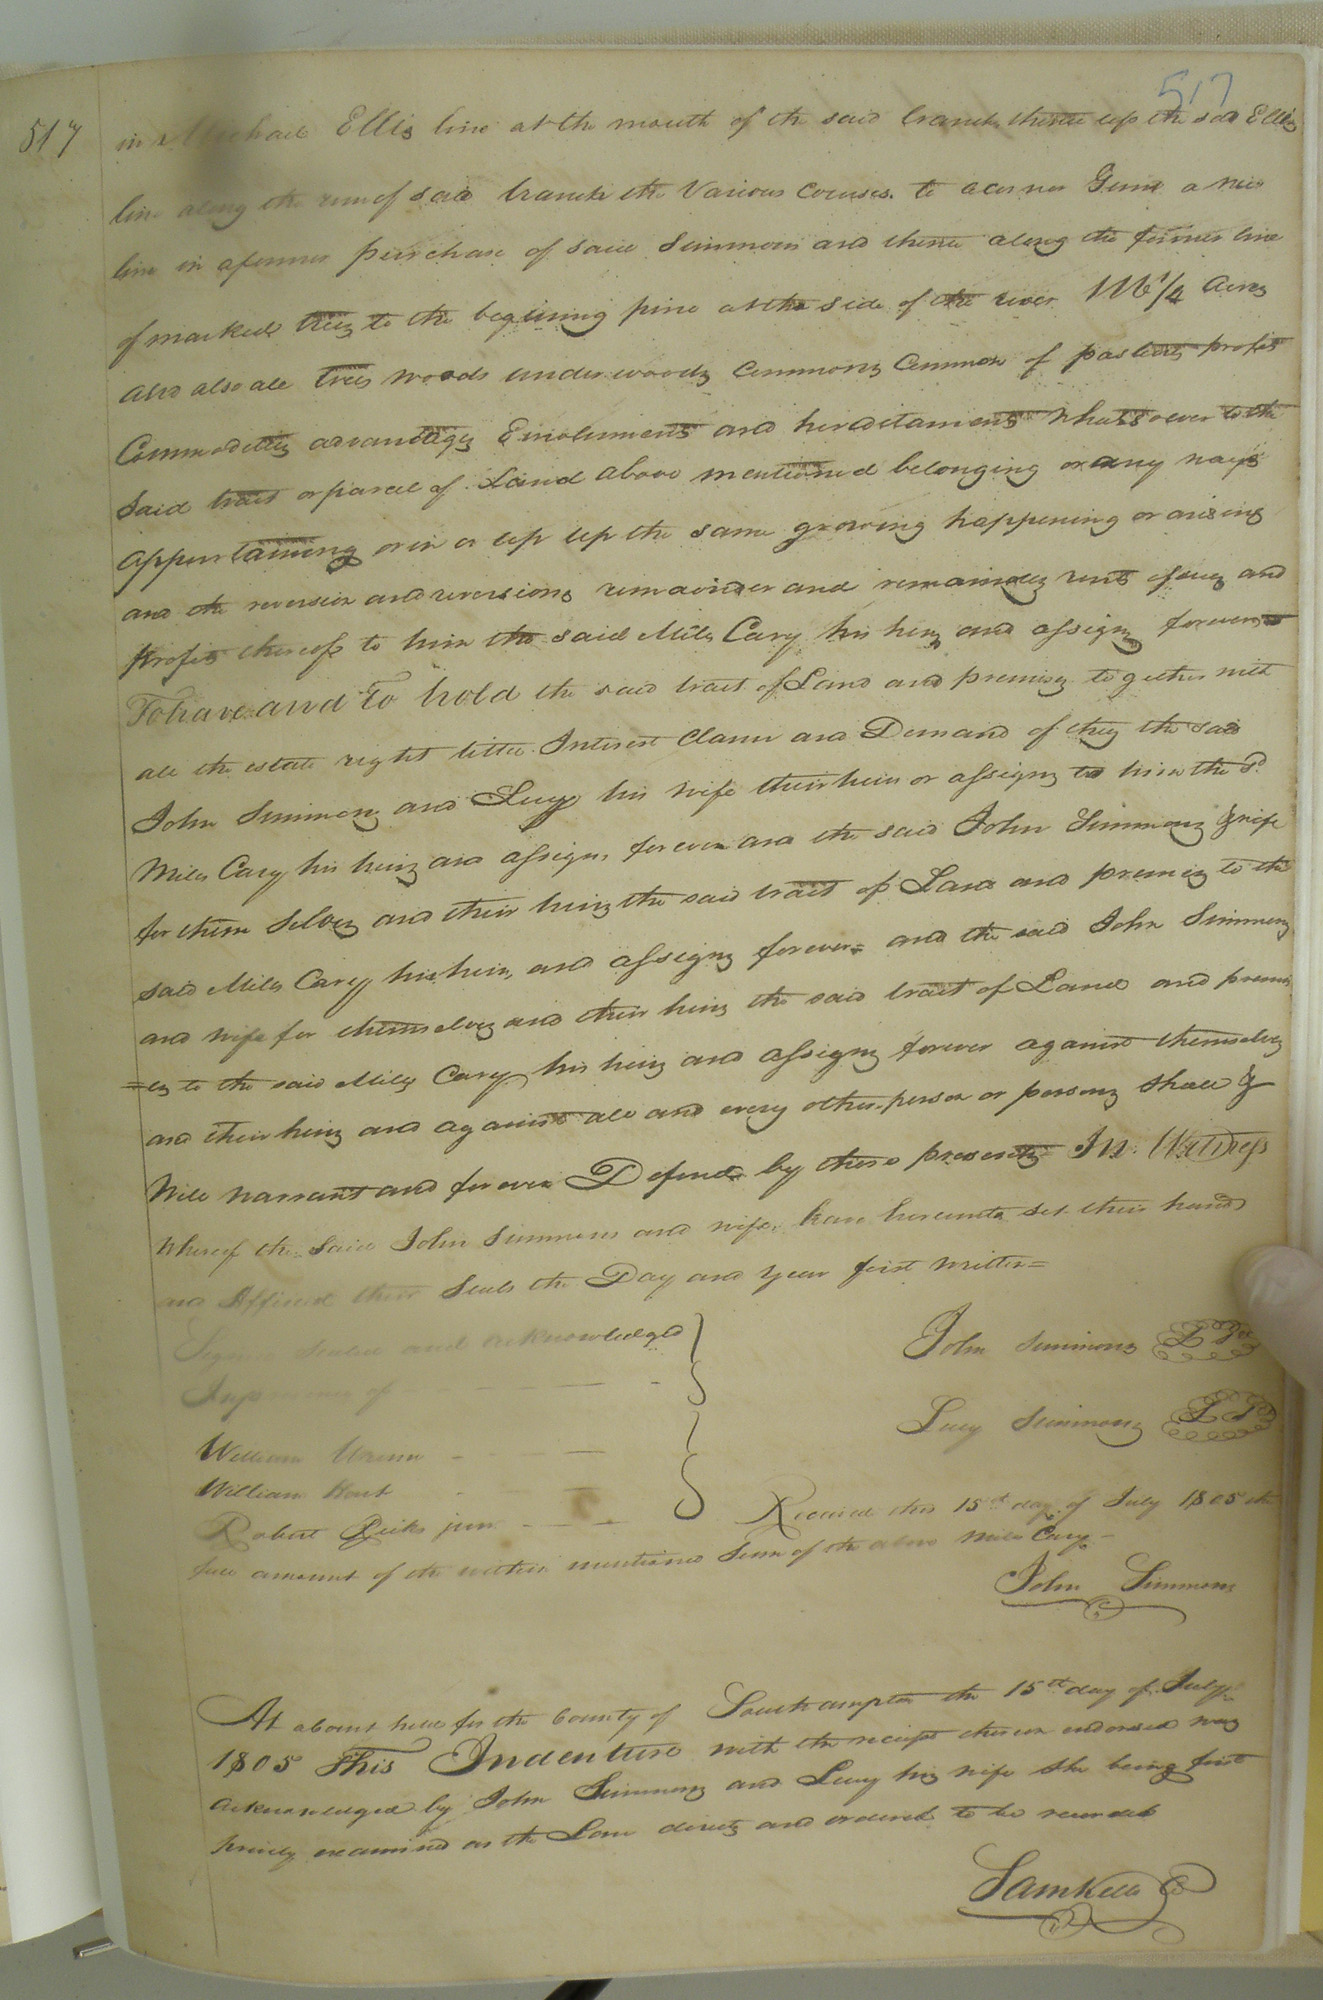 517
517
in Michael Ellis line at the mouth of the said branch thence up the sd Ellis
line along the run of said branch the Various Courses to a corner Gum a new
line in a former purchase of said Simmons and thence along the former line
of marked trees to the begining pine at the side of the river 116 1/4 Acres
and also all trees woods underwoods Commons Common of pasture profits
Commodities advantages Emoluments and hereditaments Whatsoever to the
Said tract or parcel of Land above mentioned belonging or any ways
appertaining or in or up up the same growing happening or arising
and the reversion and reversions remainder and remainders rents issues and
profits thereof to him the said Mills Cary his heirs and assigns forever
To have and To hold the said tract of Land and premises together with
all the estate right title Interest Claim and Demand of they the said
John Simmons and Lucy his wife their heirs or assigns to him the Sd.
Mills Cary his heirs and assigns forever and the said John Simmons & wife
for them Selves and their heirs the said tract of Land and premises to the
said Mills Carey his heirs and assigns forever= and the said John Simmons
and wife for themselves and their heirs the said tract of Land and premis
=es to the said Mills Cary his heirs and assigns forever against themselves
and their heirs and against all and every other person or persons Shall &
Will warrant and forever Defend by these presents In Witness
Whereof the Said John Simmons and wife have hereunto set their hands
and Affixed their Seals the Day and year first written=
Signed Sealed and acknowledged
In presence of
John Simmons
Lucy Simmons L S
William Urson
William Hart
Robert Ricks junr
Received this 15th day of July 1805 the
full amount of the within mentioned Sum of the above Mills Cary-
John Simmons
At a court held for the County of Southampton the 15th day of July
1805 This Indenture with the receipt thereon endorsed was
acknowledged by John Simmons and Lucy his wife She being first
privily examined as the Law directs and ordered to be recorded
Sam Kello